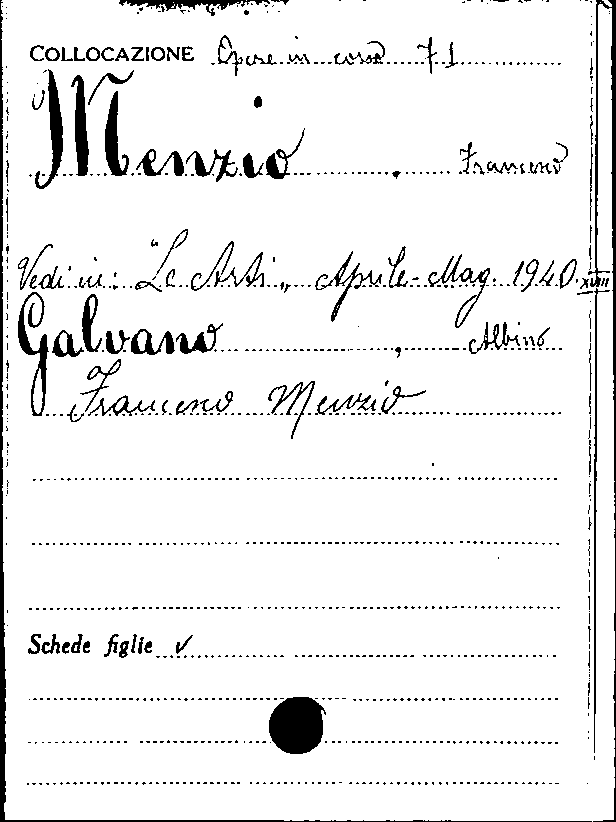 COLLOCAZIONE Opere in corso 71
Menzio, Francesco
Vedi in: "Le Arti" Aprile-Mag. 1940. XVIII
Galvano, Albino
Francesco Menzio
Schede figlie ✓